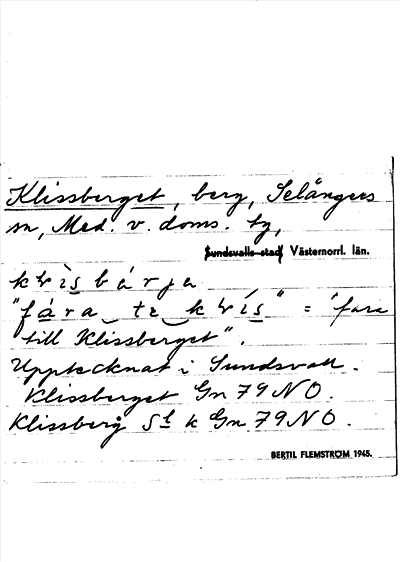 Klissberget, berg, Selångers
sn, Med. v. doms. tg,
Sundsvalls stad Västernorrl. län.
"fára te
= 'fara
till Klissberget".
Upptecknat i Sundsvall.
Klissberget Gn 79 NO.
Klissberg St k Gn 79 NO.
BERTIL FLEMSTRÖM 1965.